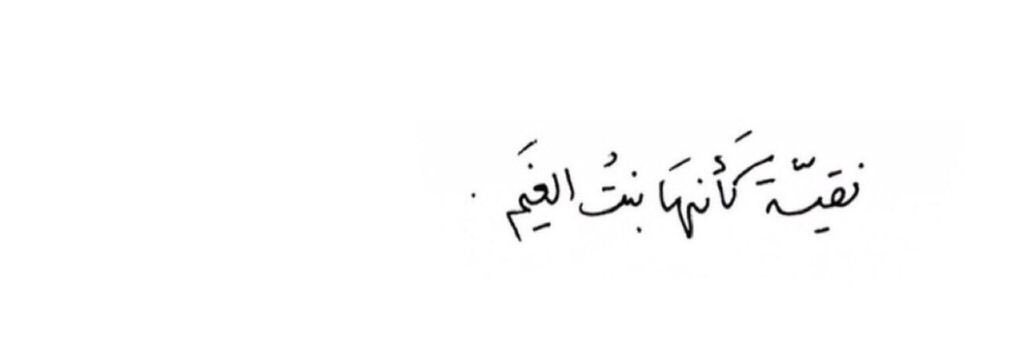 نقيّة كَأنهَا بنتُ الغَيِم .